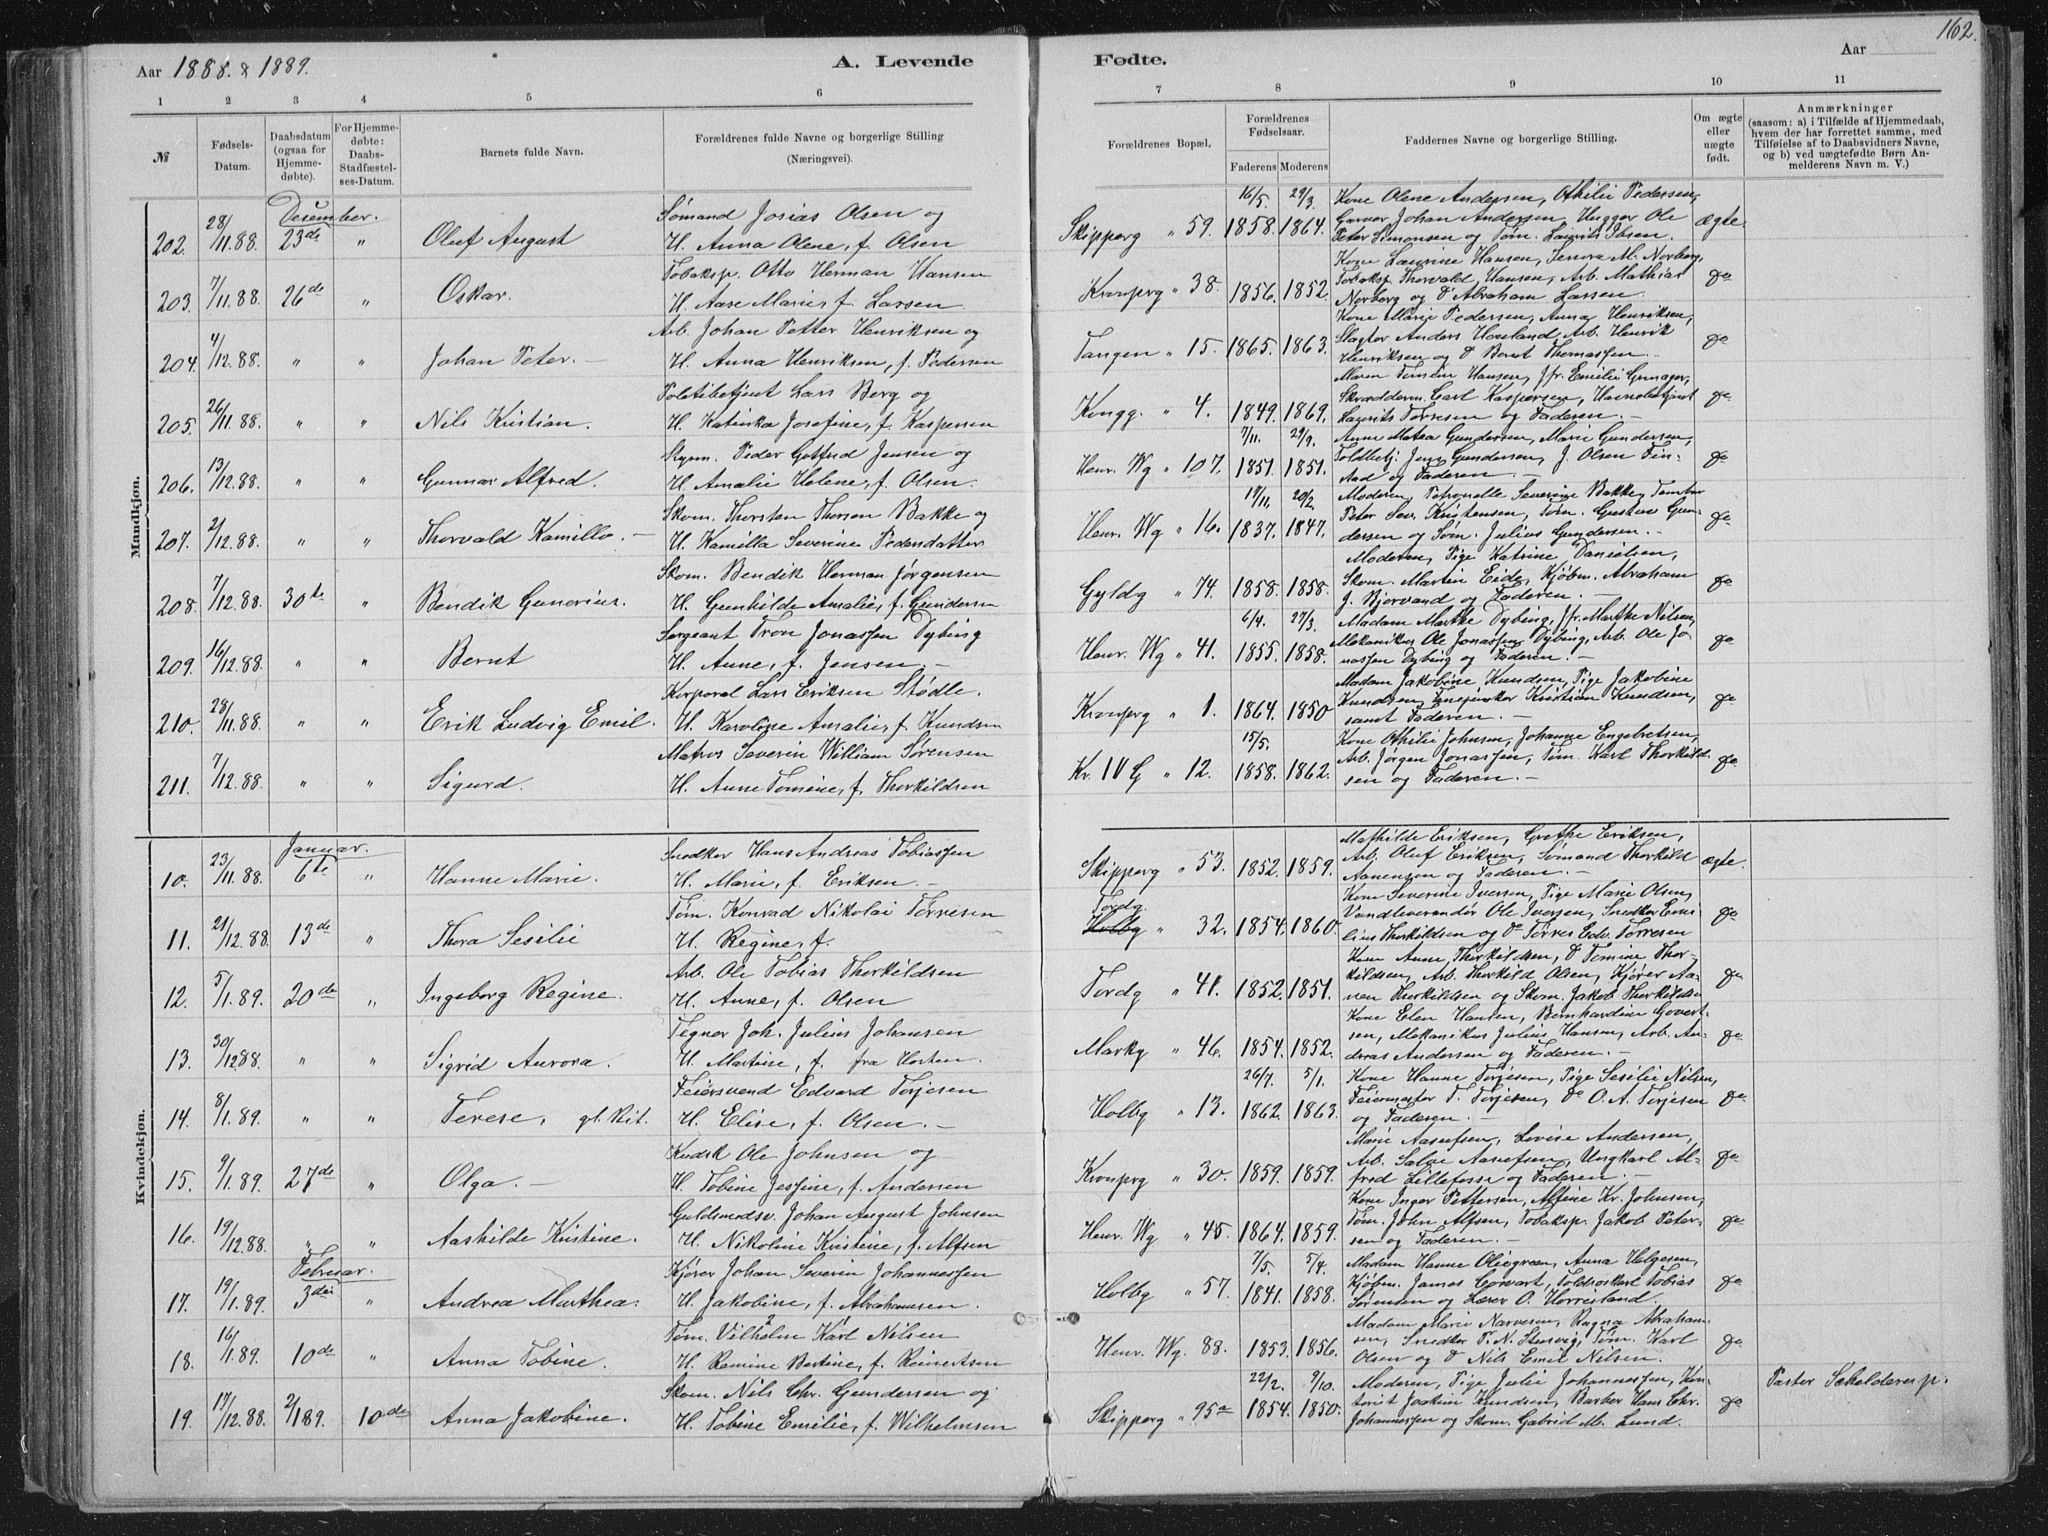 162.
Aar 1888. & 1889.
A. Levende Fødte.
Aar
1 2 3 4 5 6 7 8 9 10 11
№
Fødsels-Datum.
Daabsdatum (ogsaa for Hjemmedøbte).
For Hjemmedøbte: Daabs-Stadfæstelses-Datum.
Barnets fulde Navn.
Forældrenes fulde Navne og borgerlige Stilling (Næringsvei).
Forældrenes Bopæl,
Forældrenes Fødselsaar.
Faderens Moderens
Faddernes Navne og borgerlige Stilling.
Om ægte eller uægte født.
Anmærkninger
(saasom: a) i Tilfælde af Hjemmedaab, hvem der har forrettet samme, med Tilføielse af to Daabsvidners Navne, og b) ved uægtefødte Børn Anmelderens Navn m. V.)
Mandkjøn.
Desember.
202. 28/11.88. 23de " Oluf August
Sømand Josias Olsen og
H. Anna Olene, f. Olsen
Skipperg " 59. 16/5. 1858. 29/3. 1864.
Kone Olene Andersen, Othilie Pedersen,
Garver Johan Andersen, Unggar Ole
Peter Simonsen og Tøm. Laurits Ibsen.
ægte.
203. 7/11.88. 26de " Oskar.
Tobaksp. Otto Herman Hansen
H. Aase Marie, f. Larsen
Kronprg " 38. 1856. 1852.
Kone Laurine Hansen, M. Norberg,
Tobaksp. Thorvald Hansen, Arb. Mathias
Norberg og Do Abraham Larsen.
do
204. 4/12.88. " " Johan Peter. —
Arb. Johan Petter Henriksen og
H. Anna Henriksen, f. Pedersen
Tangen " 15. 1865. 1863.
Kone Marie Pedersen, Anna Henriksen,
Slagter Anders Houland Arb. Henrik
Henriksen og Do Bernt Thomassen. —
do
205. 26/11.88. " " Nils Kristian.
Politibetjent Lars Berg og
H. Katinka Josefine, f. Kaspersen
Kongg. " 4. 1849. 1869.
Maren Tomine Hansen, Jfr. Emilie Grunager,
Skrædderm. Carl Kaspersen, Havnebetjent
Laurits Torresen og Faderen. —
do
206. 13/12.88. " " Gunnar Alfred.
Skom. Peder Gotfred Jensen og
H. Amalie Helene, f. Olsen.
Henr. Wg " 107. 7/11. 1851. 29/9. 1851.
Anne Matea Gundersen, Marie Gundersen,
Toldbetj. Jens Gundersen, J. Olsen Fin-
stad og Faderen. —
do
207. 2/12.88. " " Thorvald Kamillo. —
Skom. Thorsten Thorsen Bakke og
H. Kamilla Severine Pedersdatter
Henr. Wg " 16. 19/11. 1837. 20/2. 1847.
Moderen, Petronelle Severine Bakke, Tambur
Peter Sev. Kristensen, Tøm. Gustav Gun-
dersen og Søm. Julius Gundersen. —
do
208. 7/12.88. 30te " Bendik Gunerius.
Skom. Bendik Herman Jørgensen
H. Gunhilde Amalie, f. Gundersen
Gyldg " 74. 1858. 1858.
Moderen, Pige Katrine Danielsen,
Skom. Martin Eide, Kjøbm. Abraham
J. Bjorvand og Faderen. —
do
209. 16/12.88. " " Bernt
Sergeant Tron Jonassen Dybing
H. Anne, f. Jensen. —
Henr. Wg " 41. 6/4. 1855. 27/3. 1858.
Madam Marthe Dybing, Jfr. Marthe Nilsen,
Mekanikus Ole Jonassen Dybing, Arb. Ole Jo-
nassen Dybing og Faderen. —
do
210. 28/11.88. " " Erik Ludvig Emil.
Korporal Lars Eriksen Stødle.
H. Karoline Amalie, f. Knudsen
Kronprg " 1. 1864. 1850
Madam Jakobine Knudsen, Pige Jakobine
Knudsen, Kristian Knudsen,
samt Faderen. —
do
211. 7/12.88. " " Sigurd.
Matros Severin William Sørensen
H. Anne Tomine, f. Thorkildsen
Kr. IV G " 12. 15/5. 1858. 1862.
Kone Othilie Johnsen, Johanne Engebretsen,
Arb. Jørgen Jonassen, Tøm. Karl Thorkild-
sen og Faderen. —
do
Kvindekjøn.
Januar.
10. 23/11.88. 6te " Hanne Marie.
Snedker Hans Andreas Tobiassen
H. Marie, f. Eriksen. —
Skipperg " 53. 1852. 1859.
Mathilde Eriksen, Grethe Eriksen,
Arb. Oluf Eriksen, Sømand Thorkild
Aanensen og Faderen. —
ægte.
11. 21/12.88. 13de " Thora Sesilie
Tøm. Konrad Nikolai Tørresen
H. Regine, f.
Tordg.
Holbg " 32. 1854. 1860.
Kone Severine Iversen, Pige Marie Olsen,
Vandleverandør Ole Iversen, Snedker Emi-
lius Thorkildsen og Do Tørres Edv. Tørresen
do
12. 5/1.89. 20de " Ingeborg Regine.
Arb. Ole Tobias Thorkildsen
H. Anne, f. Olsen
Tordg " 41. 1852. 1851.
Kone Anne Thorkildsen, Do Tomine Thor-
kildsen, Arb. Thorkild Olsen, Kjører Aa-
nen Thorkildsen og Skom. Jakob Thorkildsen
do
13. 30/12.88. " " Sigrid Aurora.
Tegner Joh. Julius Johansen
H. Martine, f. fra Horten.
Markg " 46. 1854. 1852.
Kone Elen Hansen, Bernhardine Govert-
sen, Mekanikus Julius Hansen, Arb. An-
dreas Andersen og Faderen. —
do
14. 8/1.89. " " Terese, gl. Rit.
Feiersvend Edvard Torjesen
H. Elise, f. Olsen. —
Holbg " 13. 26/7. 1862. 5/1. 1863.
Kone Hanne Torjesen, Pige Sesilie Nilsen,
Feiermester T. Torjesen, Do O. A. Torjesen
og Faderen. —
do
15. 9/1.89. 27de " Olga. —
Kudsk Ole Johnsen og
H. Tobine Jessine, f. Andersen
Kronprg " 30. 1859. 1859.
Marie Aasufsen, Lovise Andersen,
Arb. Salve Aasufsen, Ungkarl Al-
fred Lillefosse og Faderen —
do
16. 19/12.88. " " Aashilde Kristine.
Guldsmedsv. Johan August Johnsen
H. Nikoline Kristine, f. Alfsen
Henr. Wg " 45. 1864. 1859.
Kone Inger Pettersen, Alfine Kr. Johnsen,
Tøm. John Alfsen, Tobaksp. Jakob Peter-
sen og Faderen. —
do
Februar.
17. 19/1.89. 3die " Andrea Marthea.
Kjører Johan Severin Johannessen
H. Jakobine, f. Abrahamsen.
Holbg " 57. 7/5. 1841. 5/4. 1858.
Madam Hanne Oliegreen, Anna Helgesen,
Kjøbm. James Corvart, Toldroskarl Tobias
Sørensen og Lærer O. Horrisland.
do
18. 16/1.89. 10de " Anna Tobine.
Tøm. Vilhelm Karl Nilsen
H. Ramine Bertine, f. Reinertsen
Henr. Wg. 88. 1853. 1856.
Madam Marie Narvesen, Ragna Abraham-
sen, Snedker P. N. Stensvig, Tøm. Karl
Olsen og Do Nils Emil Nilsen.
do
19. 17/12.88. 2/1.89. 10de Anna Jakobine.
Skom. Nils Chr. Gundersen og
H. Tobine Emilie, f. Wilhelmsen
Skipperg " 95a 22/2. 1854. 9/10. 1850.
Moderen, Pige Julie Johannessen, Kon-
torist Joakim Knudsen, Barber Hans Chr.
Johannessen og Skom. Gabriel M. Lund.
do
Pastor Schelderup.